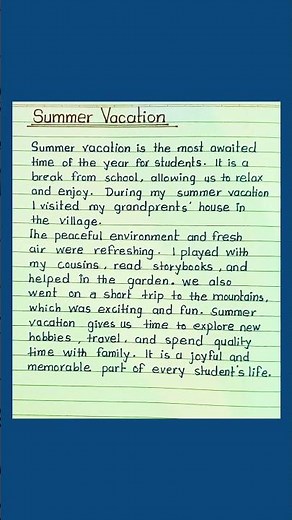 Summer Vacation
Summer vacation is the most awaited
time of the year for students. It is a
break from school, allowing us to relax
and enjoy. During my summer vacation
I visited my grandprents' house in
the village.
The peaceful environment and fresh
air were refreshing. I played with
my cousins, read storybooks, and
helped in the garden. we also
went on a short trip to the mountains,
which was exciting and fun. Summer
vacation gives us time to explore new
hobbies, travel, and spend quality
time with family. It is a joyful and
memorable part of every student's life.